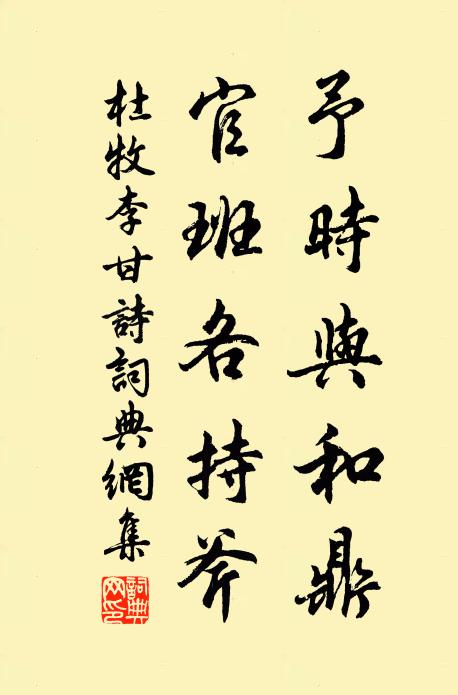 予時與和鼎
官班各持斧
杜牧李甘詩詞典網集
詞典網印